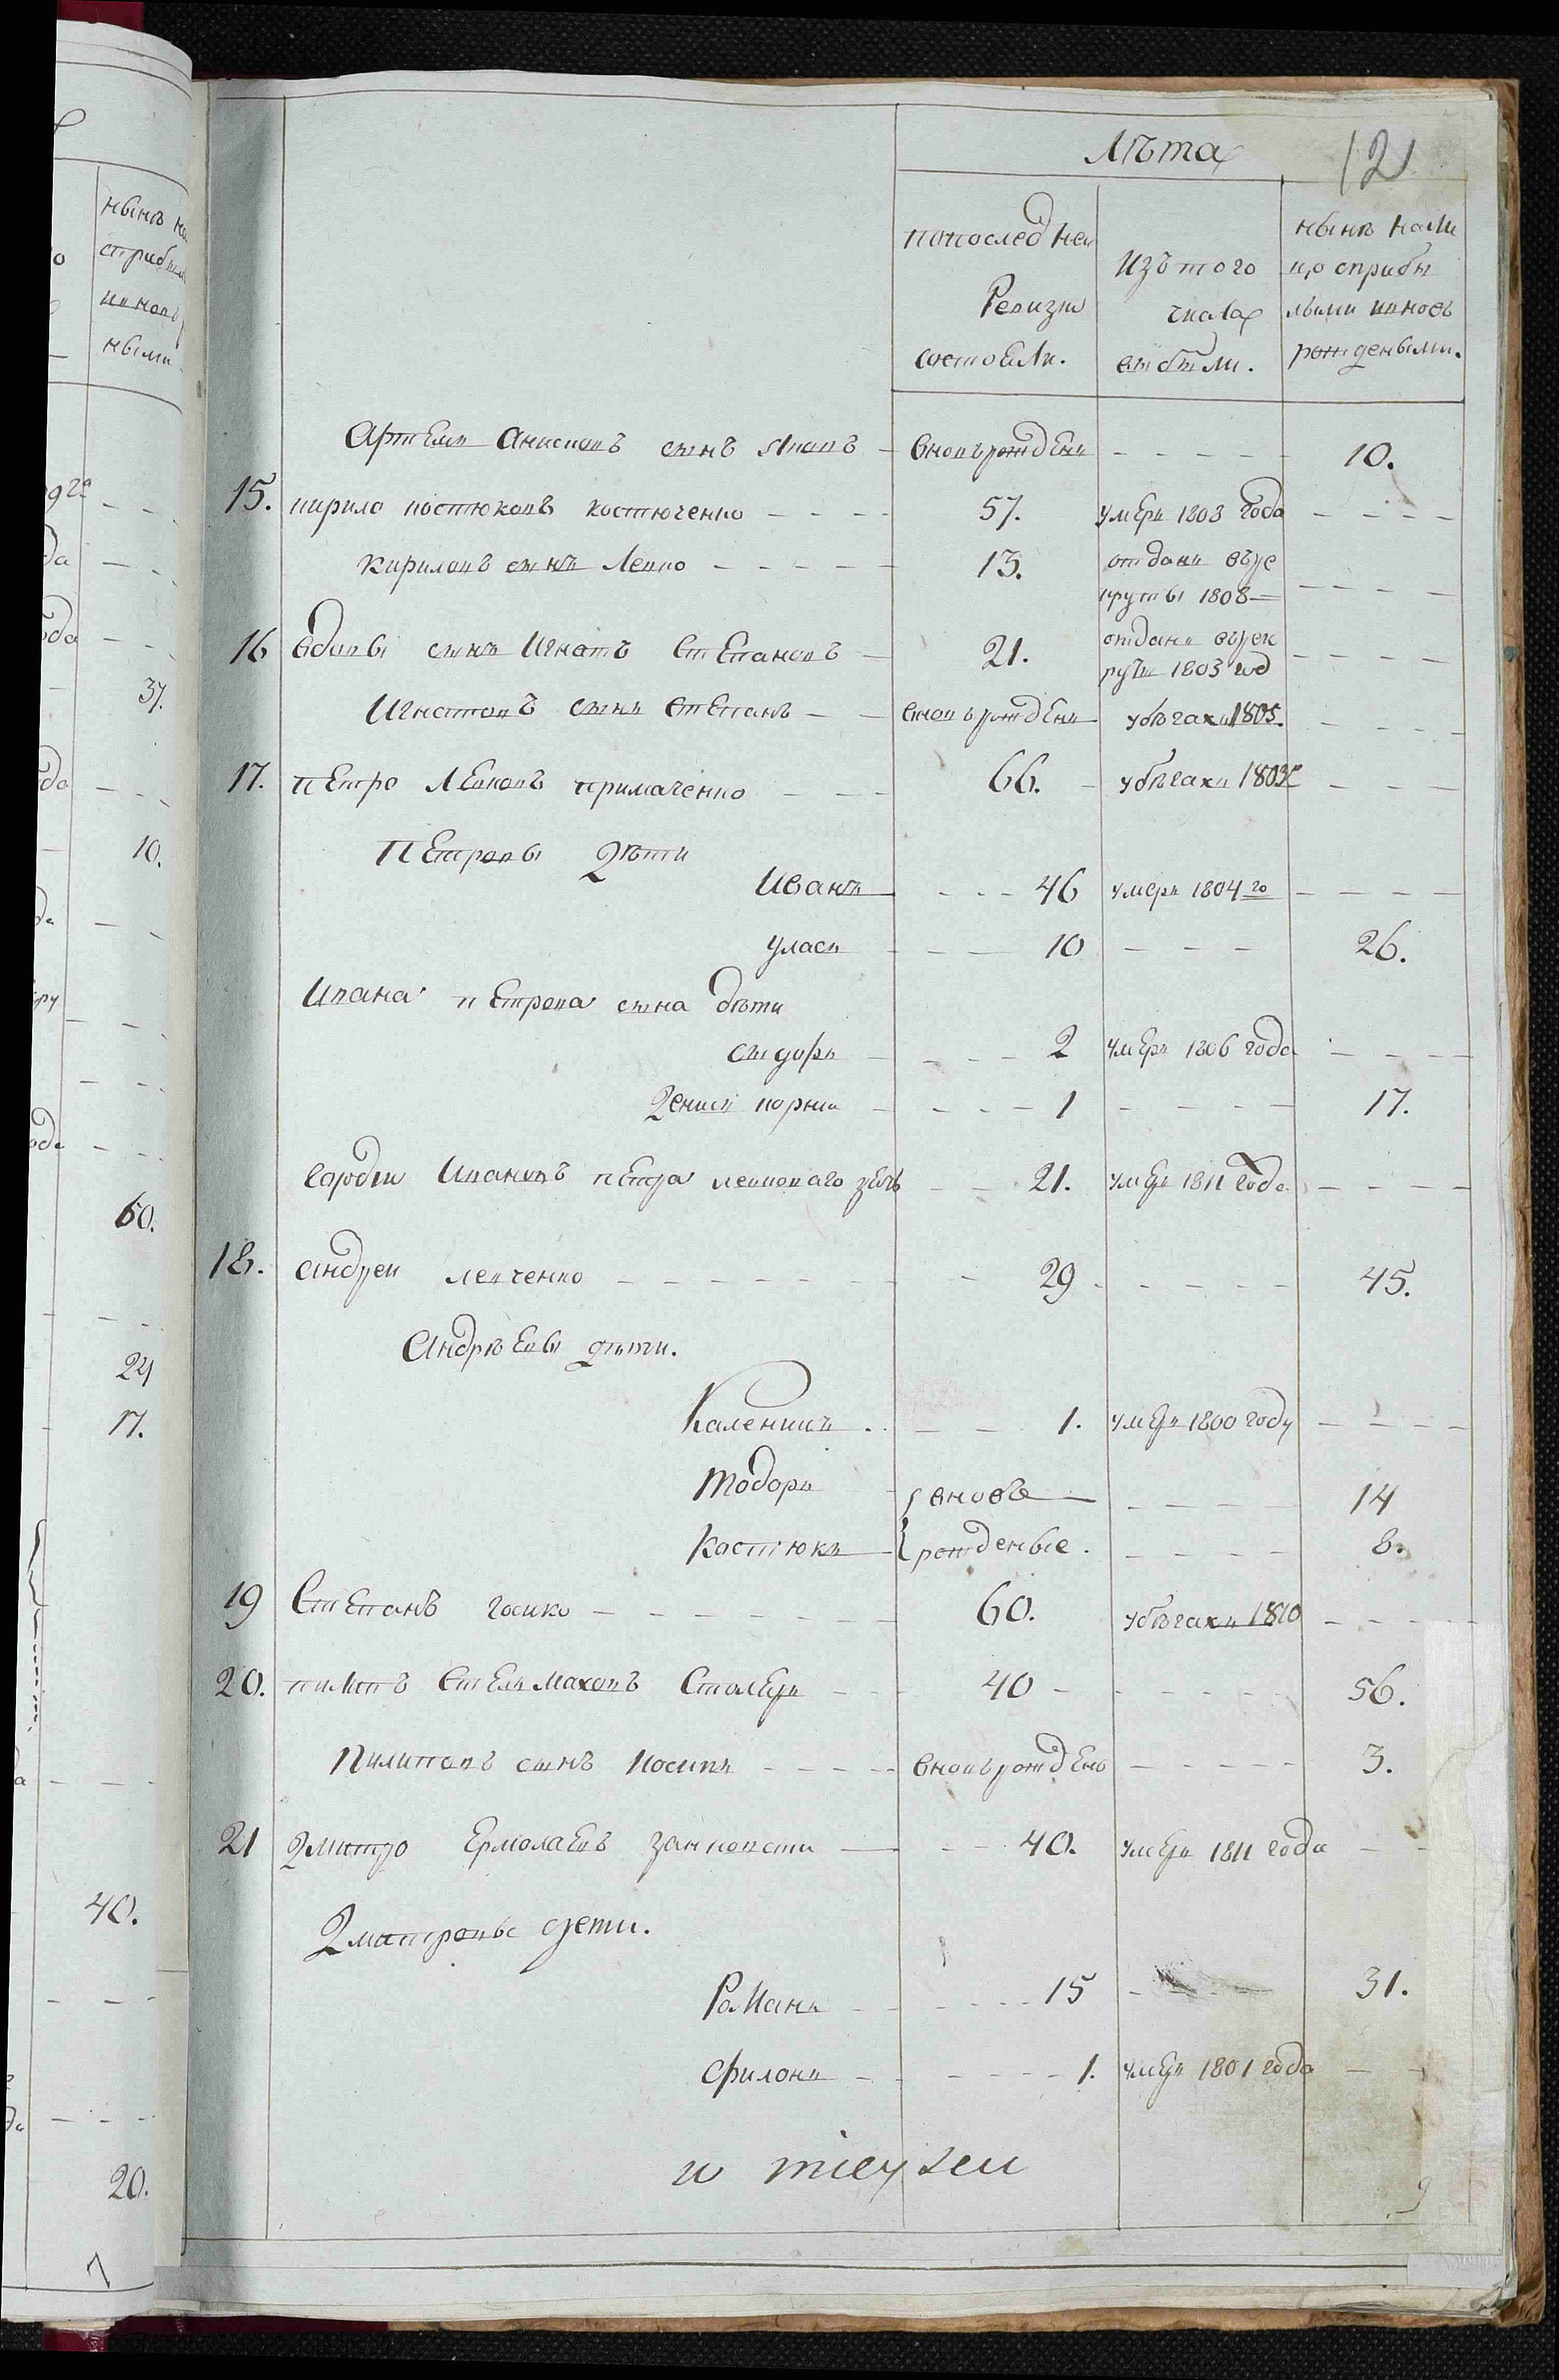 Лѣта
121
попоследней
Ревизии
состоЕли.
Изъ того
числа
выбыли.
нынѣ нали
цо сприбы
лыми ивновь
рождеными.
АртЕмъ Анисимовъ сынъ Яковъ вновьрождЕнъ 10.
15. кирило костюковъ костюченко 57. умЕръ 1803 года
кириловъ сынъ Левко 13. отданъ върe
круты 1808
16 вдовы сынъ Игнатъ СтЕпановъ 21. отданъ върек
руты 1803 год
Игнатовъ сынъ СтЕпанъ вновьрождЕнъ убѣгахъ 1805.
17. пЕтро ЛЕвковъ примаченко 66. убѣгахъ 1803
ПЕтровы дѣти
Иванъ 46 умеръ 1804го
уласъ 10 26.
Ивана пЕтрова сына дѣти
сыдоръ 2 умЕръ 1806 года
Денисъ 1 17.
Ивановъ пЕтра 21. умЕръ 1811 года
18. Андреи левченко 29 45.
АндрѣЕвы дѣти.
Каленикъ. 1. умЕръ 1800 году
Тодоръ вновь 14
Костюкъ рожденые. 8.
19 СтЕпанъ 60. убѣгахъ 1810
20. пилипъ СтЕльмаховъ СтолЕръ 40 56.
Пилиповъ сынъ Иосипъ вновьрождЕнъ 3.
21 Дмитро ЕрмолаЕвъ 40. умЕръ 1811 года
Дмитровы дети.
РоМанъ 15 31.
Филонъ 1. умЕръ 1801 года
9
нынѣ на
сприбы
ивновь
ными
37.
10.
60.
24
17.
40.
20.
7